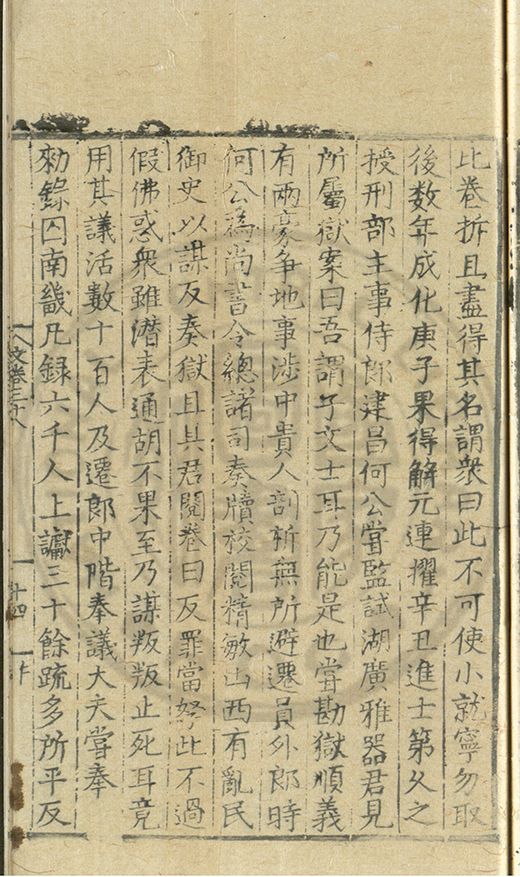 此卷拆且盡得其名謂衆曰此不可使小就寧勿取
後数年成化庚子果得解元連擢辛丑進士第久之
授刑部主事侍郎建昌何公嘗監試湖廣雅器君見
所屬獄案曰吾謂子文士耳乃能是也嘗勘獄順義
有兩豪争地事涉中貴人剖析無所避遷員外郎時
何公為尚書令總諸司奏牘校閱精敏山西有亂民
御史以謀反奏獄且具君閱卷曰反罪當孥此不過
假佛惑衆雖潛表通胡不果至乃謀叛叛止死耳竟
用其議活數十百人及遷郎中階奉議大夫嘗奉
勑錄囚南畿凡録六千人上讞三十餘疏多所平反
文卷三十八
十四